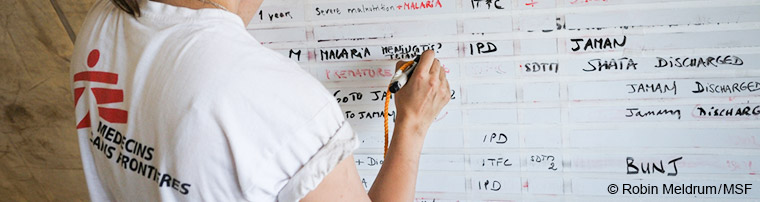 1 year Severe malnutrition + MALARIA ITFC
M MALARIA MENINGITIS? IPD JAMAN
TETANUS
SDTM SHATA DISCHARGED
GOTO JAM JAMAM DISCHARGED
TO JAMAM Jamam Discharged
IPD
ITFC SDTM 2 BUNJ
IPD
MEDECINS
SANS FRONTIERES
© Robin Meldrum/MSF